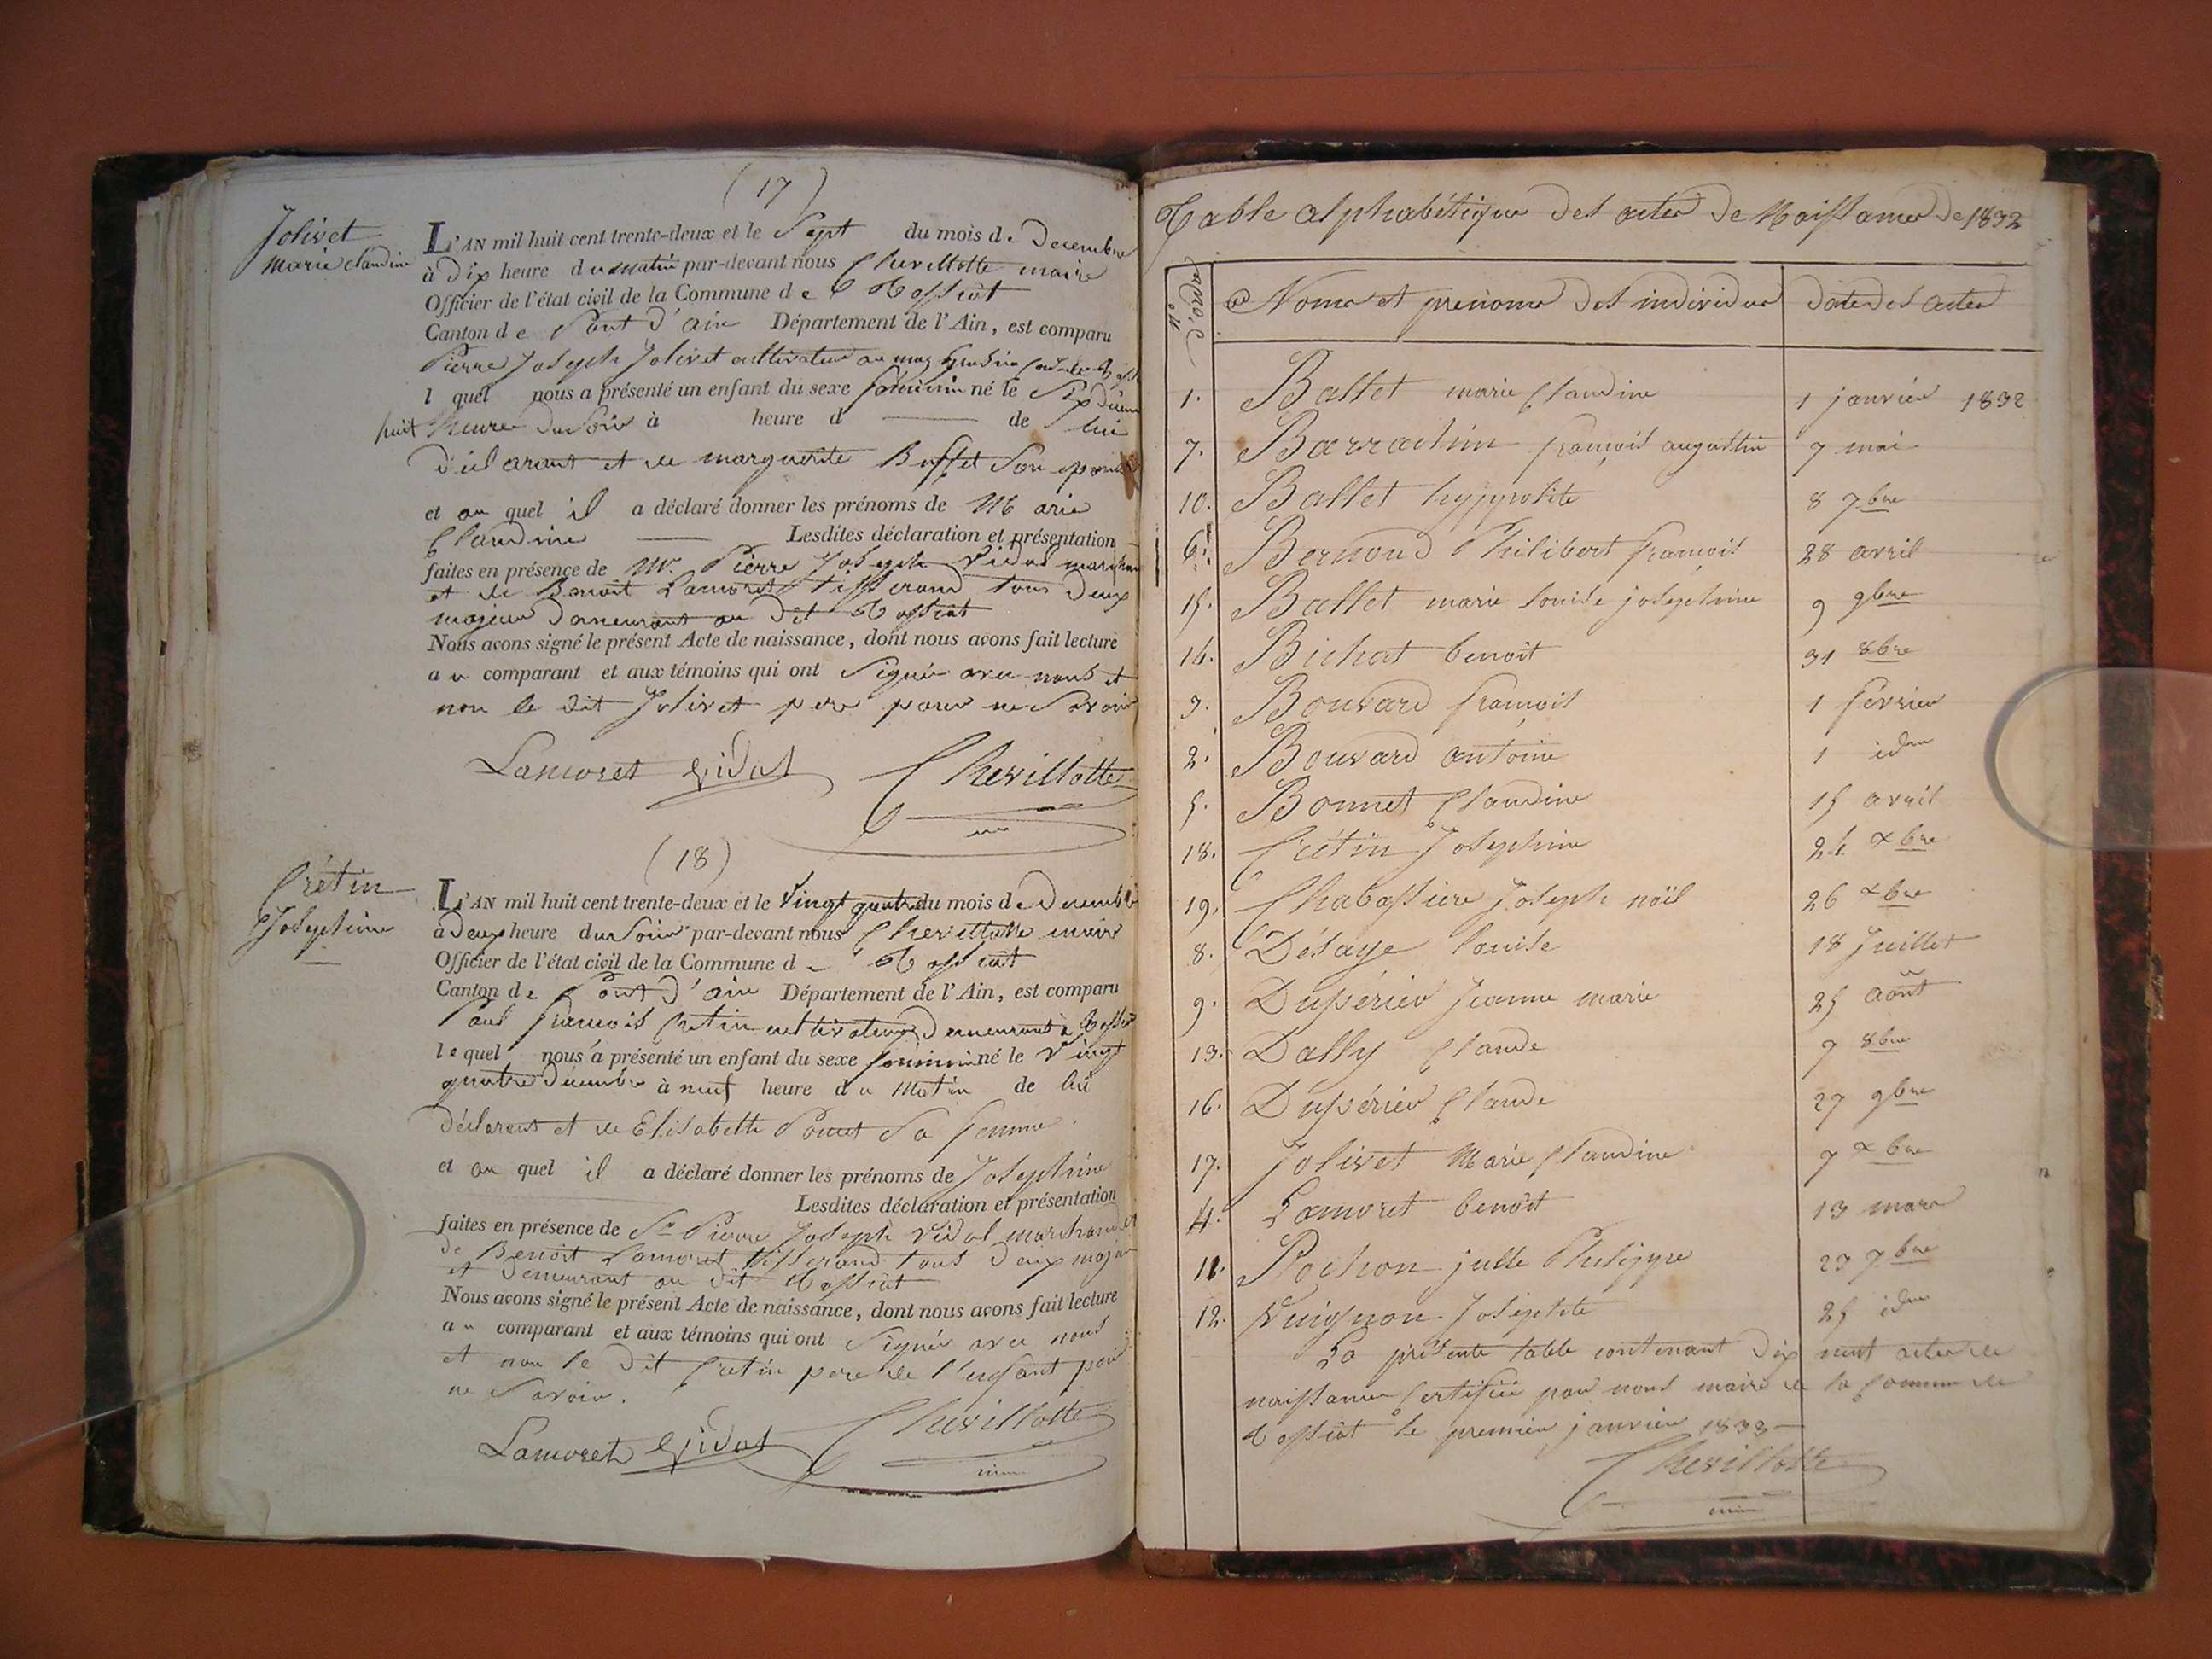 (17)
Jolivet
marie claudine
L'AN mil huit cent trente-deux et le Sept du mois de Decembre
à Dix heure du matin par-devant nous Chevillotte maire
Officier de l'état civil de la Commune de Tossiat
Canton de Pont d'ain Département de l'Ain, est comparu
Pierre Joseph Jolivet cultivateur au
l quel nous a présenté un enfant du sexe féminin né le Six décem
huit heure du Soir à heure d de lui
déclarant et de marguerite Buffet Son epouse
et au quel il a déclaré donner les prénoms de Marie
Claudine Lesdites déclaration et présentation
faites en présence de Mr. Pierre Joseph Vidal marchan
et de Benoit Lamoret tisserand tous deux
majeur demeurant au dit Tossiat
Nous avons signé le présent Acte de naissance, dont nous avons fait lecture
au comparant et aux témoins qui ont Signé avec nous et
non le dit Jolivet pere pour ne Savoir
Lamoret Vidal Chevillotte
(18)
Crétin
Josephine
L'AN mil huit cent trente-deux et le Vingt quatre du mois de Decembre
à Deux heure du Soir par-devant nous Chevillotte maire
Officier de l'état civil de la Commune de Tossiat
Canton de Pont d'ain Département de l'Ain, est comparu
Paul françois Cretin cultivateur demeurant à Tossiat
lequel nous a présenté un enfant du sexe feminin né le Vingt
quatre Décembre à neuf heure du Matin de lui
Déclarant et de Elisabeth Ponet Sa femme
et au quel il a déclaré donner les prénoms de Josephine
Lesdites déclaration et présentation
faites en présence de Sr Pierre Joseph Vidal marchand et
de Benoit Lamoret tisserand tous deux majeur
et demeurant au dit Tossiat
Nous avons signé le présent Acte de naissance, dont nous avons fait lecture
au comparant et aux témoins qui ont Signé avec nous
et non le dit Cretin pere de l'enfant pour
ne Savoir.
Lamoret Vidal Chevillotte
Table alphabétique des actes de Naissances de 1832
Nos d'ordre Noms et prénoms des individus date des actes
1. Ballet marie Claudine 1 janvier 1832
7. Barrachin françois augustin 7 mai
10. Ballet hyppolite 8 7bre
6. Bernoud Philibert françois 28 avril
15. Ballet marie louise joséphine 9 9bre
14. Bichat benoit 31 8bre
3. Bouvard françois 1 février
2. Bouvard antoine 1 idm
5. Bonnet Claudine 15 avril
18. Crétin Josephine 24 xbre
19. Chabassiere Joseph noël 26 xbre
8. Désaye louise 18 Juillet
9. Dupérier Jeanne marie 25 août
13. Dally Claude 7 8bre
16. Dupérier Claude 27 9bre
17. Jolivet Marie Claudine 7 xbre
4. Lamoret benoit 13 mars
11. Pochon julle Philippe 23 7bre
12. Vuignon Josephte 25 idm
La présente table contenant dix neuf actes de
naissance Certifiée par nous maire de la Commune de
Tossiat le premier janvier 1833
Chevillotte